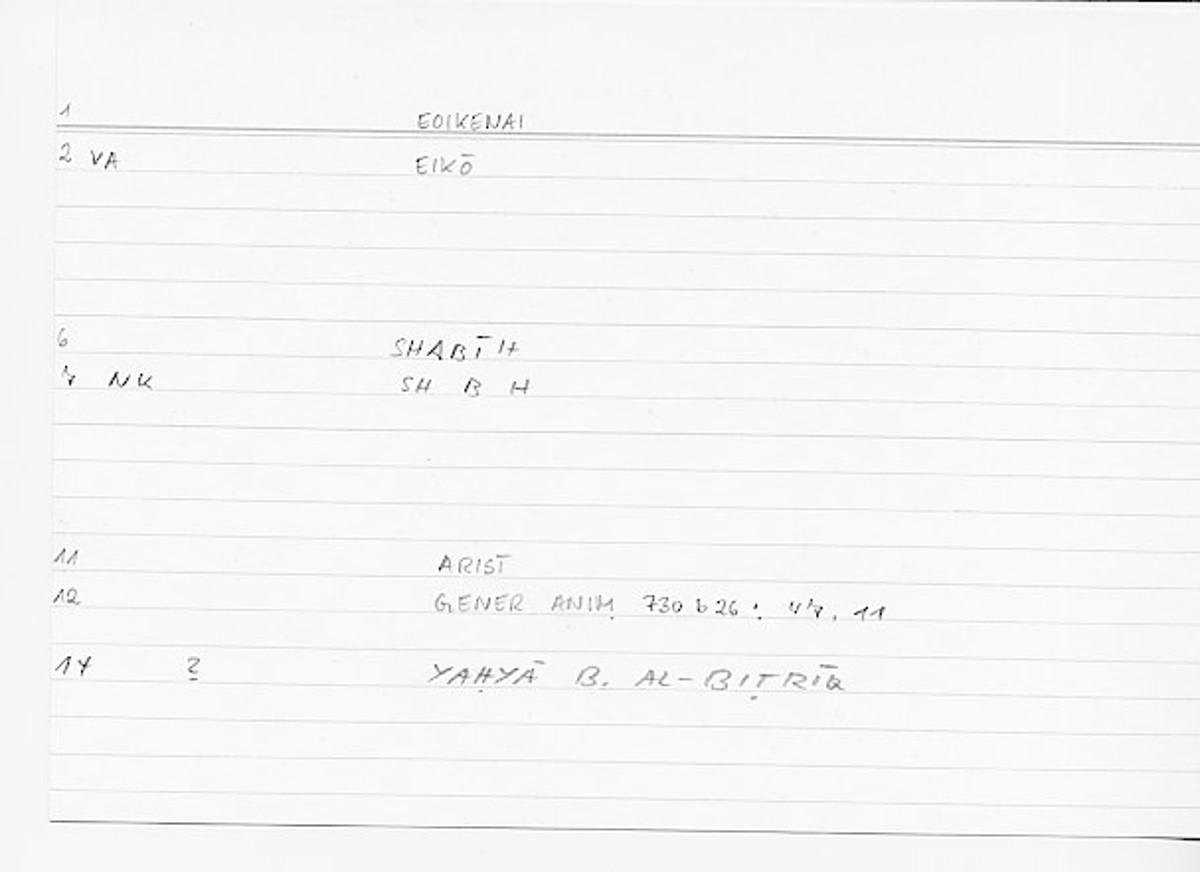 1 EOIKENAI
2 VA EIKŌ
6 SHABĪH
7 NK SH B H
11 ARIST
12 GENER ANIM. 730 b 26 : 47, 11
14 2 YAḤYĀ B. AL-BIṬRĪQ